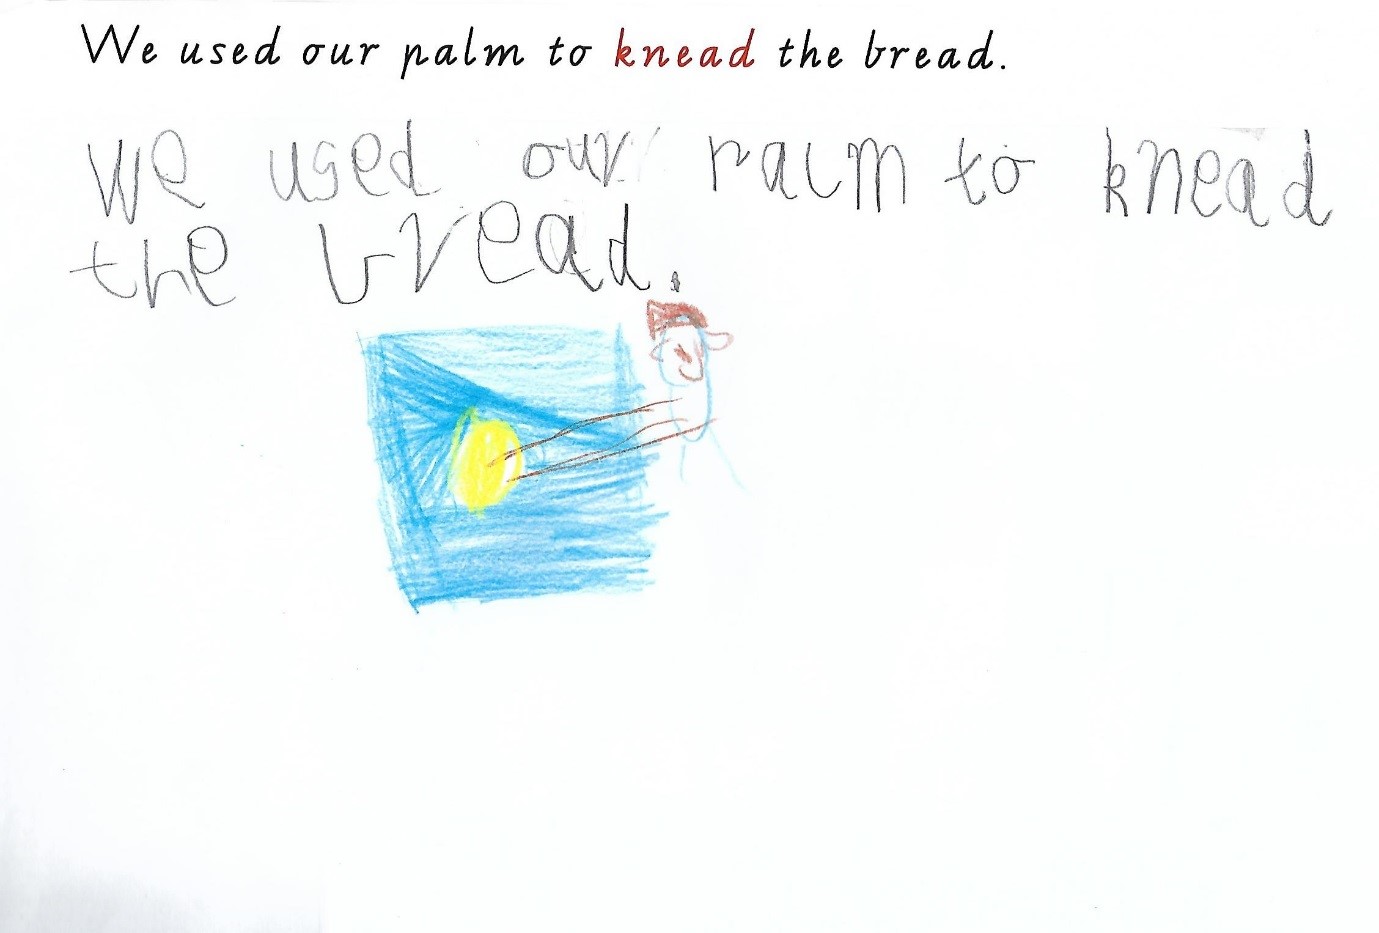 We used our palm to knead the bread.
We used our palm to knead
the bread.